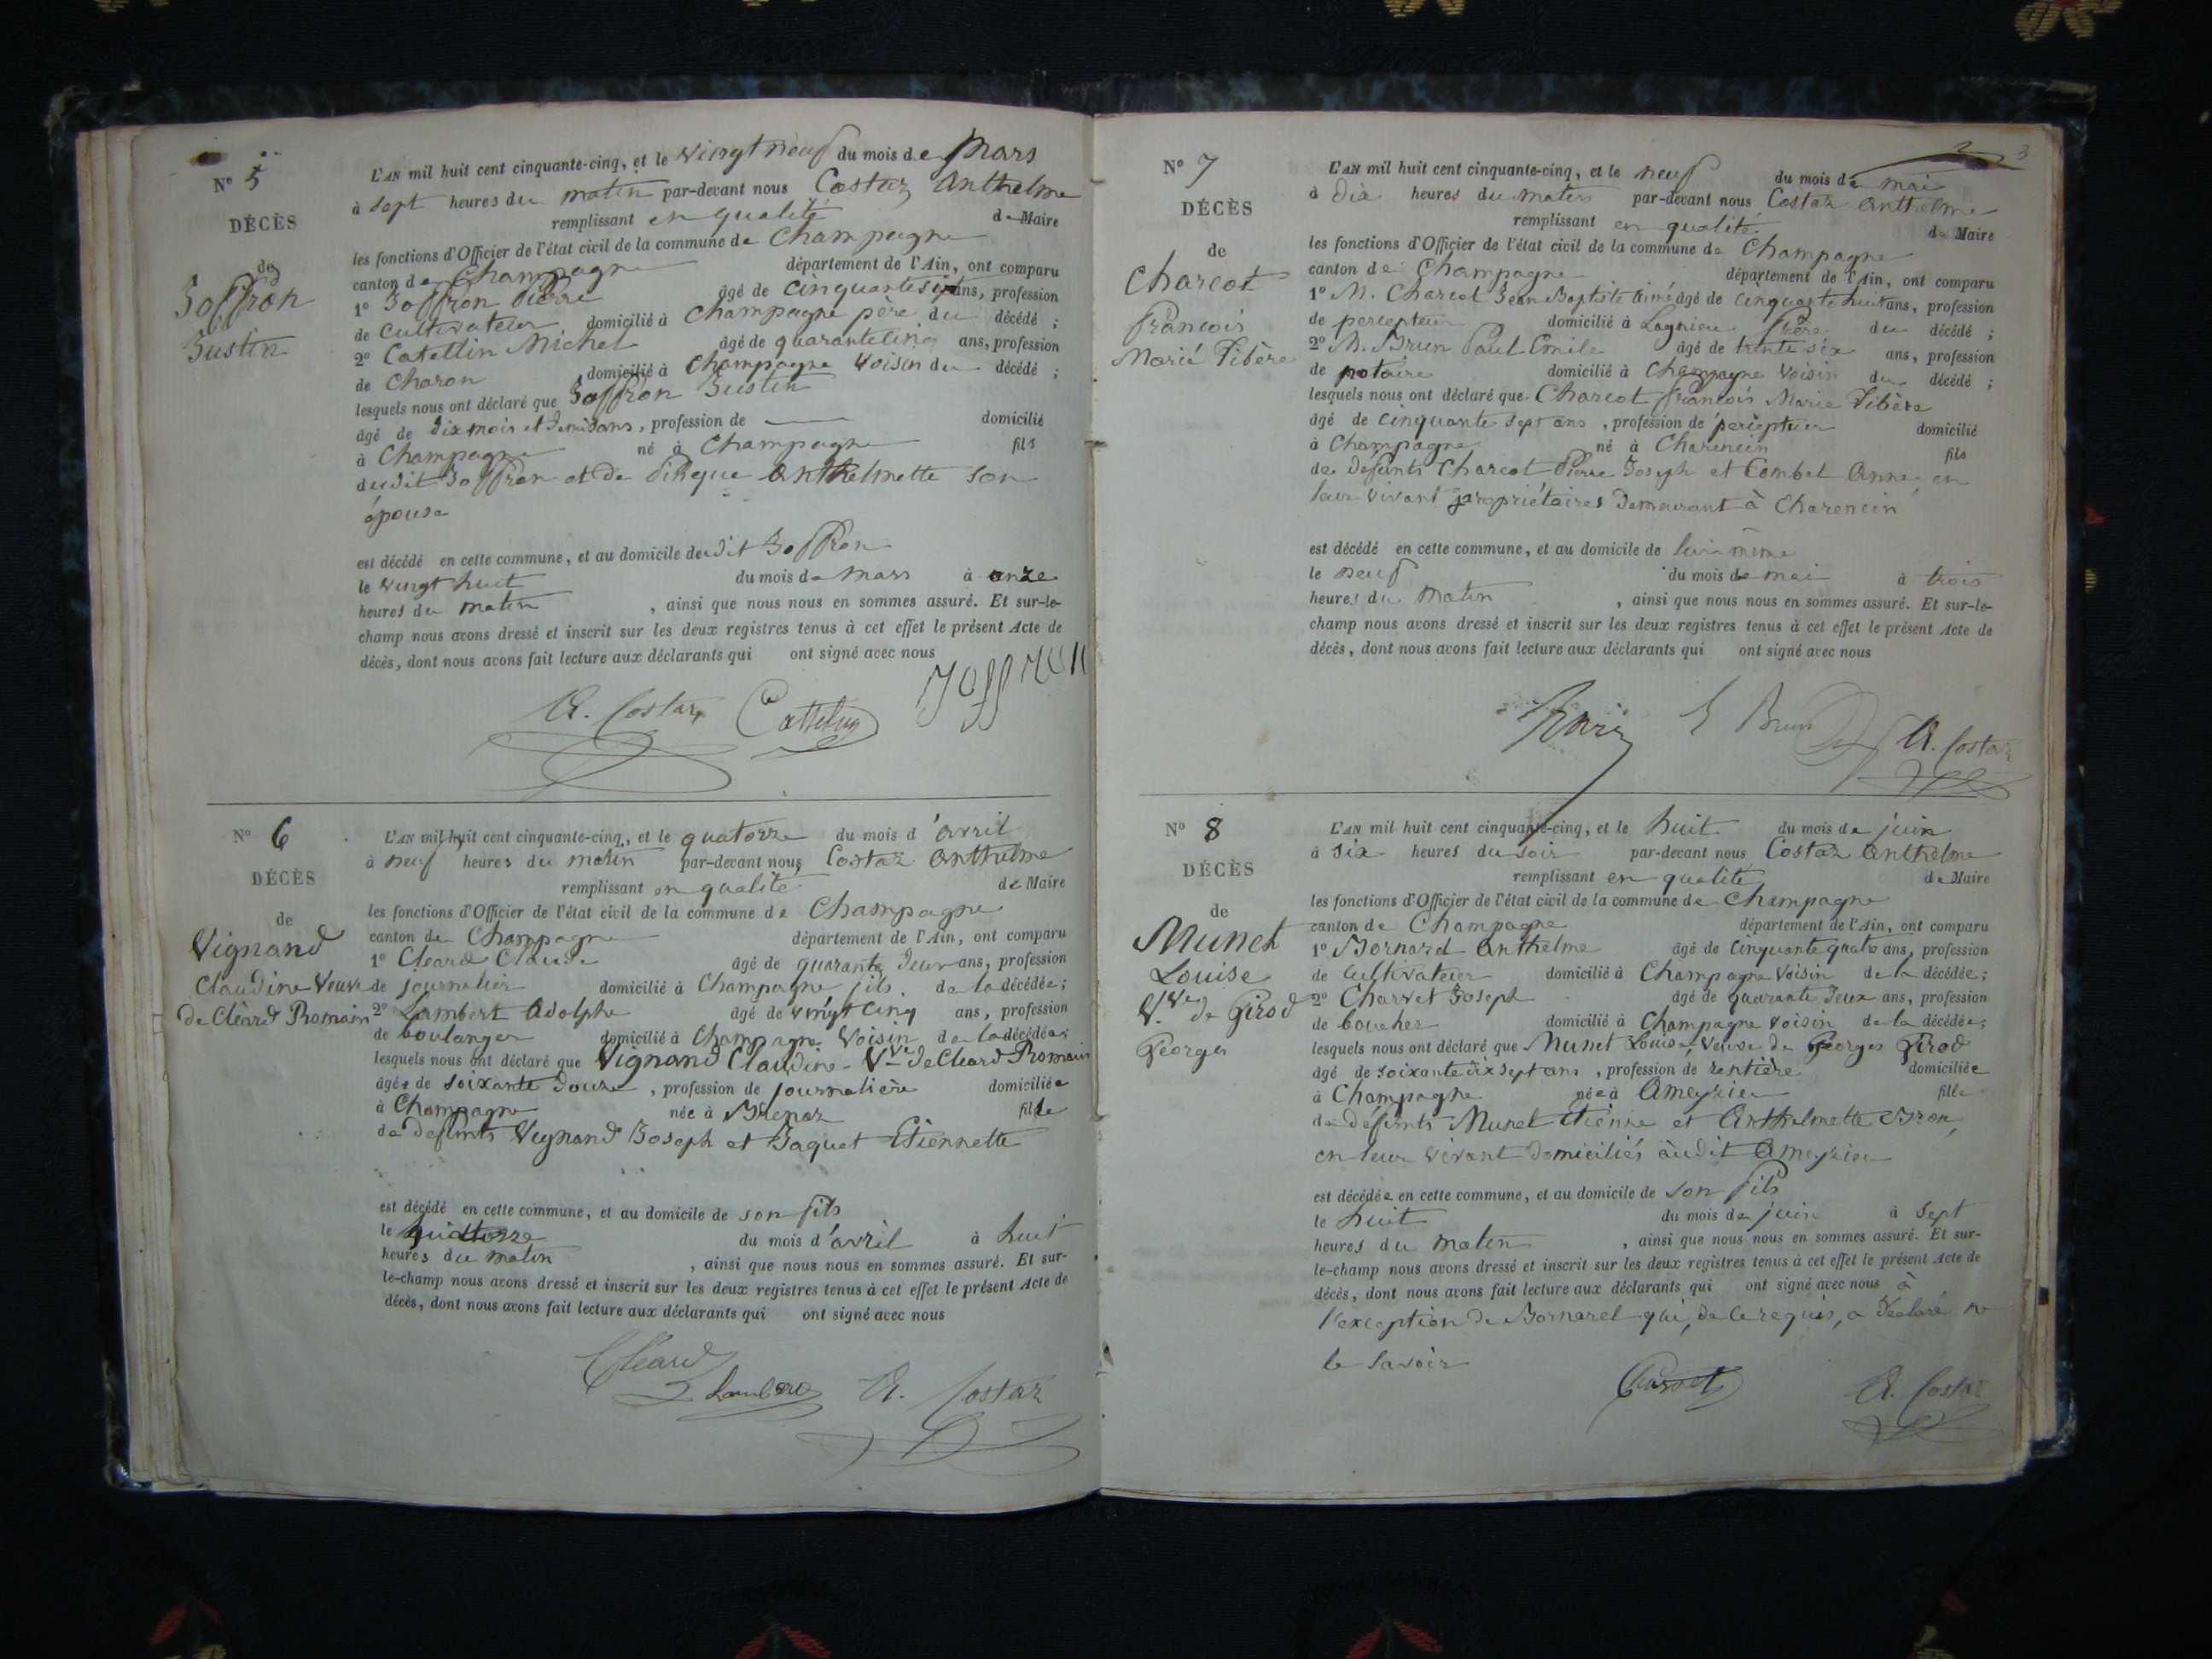 N° 5
DÉCÈS
de
Joffron
Justin
L'AN mil huit cent cinquante-cinq, et le vingt neuf du mois de Mars
à sept heures du matin par-devant nous Costaz Anthelme
remplissant en qualité de Maire
les fonctions d'Officier de l'état civil de la commune de Champagne
canton de Champagne département de l'Ain, ont comparu
1° Joffron Pierre âgé de cinquante six ans, profession
de cultivateur domicilié à Champagne père du décédé ;
2° Catellin Michel âgé de quarante cinq ans, profession
de charon domicilié à Champagne voisin du décédé ;
lesquels nous ont déclaré que Joffron Justin
âgé de dix mois et demi ans, profession de — domicilié
à Champagne né à Champagne fils
dudit Joffron et de Anthelmette son
épouse
est décédé en cette commune, et au domicile dudit Joffron
le vingt huit du mois de mars à onze
heures du matin , ainsi que nous nous en sommes assuré. Et sur-le-
champ nous avons dressé et inscrit sur les deux registres tenus à cet effet le présent Acte de
décès, dont nous avons fait lecture aux déclarants qui ont signé avec nous
Joffron
A. Costaz Cattelin
N° 6
DÉCÈS
de
Vignand
Claudine veuve
de Cléard Romain
L'AN mil huit cent cinquante-cinq, et le quatorze du mois d'avril
à neuf heures du matin par-devant nous Costaz Anthelme
remplissant en qualité de Maire
les fonctions d'Officier de l'état civil de la commune de Champagne
canton de Champagne département de l'Ain, ont comparu
1° Cléard Claude âgé de quarante deux ans, profession
de journalier domicilié à Champagne fils de la décédée ;
2° Lambert Adolphe âgé de vingt cinq ans, profession
de boulanger domicilié à Champagne voisin de la décédée ;
lesquels nous ont déclaré que Vignand Claudine - Vve de Cléard Romain
âgée de soixante douze , profession de journalière domiciliée
à Champagne née à Brenaz fille
de défunts Vignand Joseph et Jaquet Etiennette
est décédé en cette commune, et au domicile de son fils
le quatorze du mois d'avril à huit
heures du matin , ainsi que nous nous en sommes assuré. Et sur-
le-champ nous avons dressé et inscrit sur les deux registres tenus à cet effet le présent Acte de
décès, dont nous avons fait lecture aux déclarants qui ont signé avec nous
Cléard
Lambert A. Costaz
3
N° 7
DÉCÈS
de
Charcot
François
Marie Tibère
L'AN mil huit cent cinquante-cinq, et le neuf du mois de mai
à dix heures du matin par-devant nous Costaz Anthelme
remplissant en qualité de Maire
les fonctions d'Officier de l'état civil de la commune de Champagne
canton de Champagne département de l'Ain, ont comparu
1° M. Charcot Jean Baptiste Aimé âgé de cinquante huit ans, profession
de percepteur domicilié à Lagnieu frère du décédé ;
2° M. Brun Paul Emile âgé de trente six ans, profession
de notaire domicilié à Champagne voisin du décédé ;
lesquels nous ont déclaré que Charcot François Marie Tibère
âgé de cinquante sept ans , profession de percepteur domicilié
à Champagne né à Charencin fils
de défunts Charcot Pierre Joseph et Combet Anne, en
leur vivant propriétaires demeurant à Charencin
est décédé en cette commune, et au domicile de lui même
le neuf du mois de mai à trois
heures du matin , ainsi que nous nous en sommes assuré. Et sur-le-
champ nous avons dressé et inscrit sur les deux registres tenus à cet effet le présent Acte de
décès, dont nous avons fait lecture aux déclarants qui ont signé avec nous
E Brun A. Costaz
N° 8
DÉCÈS
de
Munet
Louise
Vve de Girod
Georges
L'AN mil huit cent cinquante-cinq, et le huit du mois de juin
à six heures du soir par-devant nous Costaz Anthelme
remplissant en qualité de Maire
les fonctions d'Officier de l'état civil de la commune de Champagne
canton de Champagne département de l'Ain, ont comparu
1° Bornard Anthelme âgé de cinquante quatre ans, profession
de cultivateur domicilié à Champagne voisin de la décédée ;
2° Charvet Joseph âgé de quarante deux ans, profession
de boucher domicilié à Champagne voisin de la décédée ;
lesquels nous ont déclaré que Munet Louise, veuve de Georges Girod
âgé de soixante dix sept ans , profession de rentière domiciliée
à Champagne née à Ameyzieu fille
de défunts Munet Etienne et Anthelmette
en leur vivant domiciliés audit Ameyzieu
est décédée en cette commune, et au domicile de son fils
le huit du mois de juin à sept
heures du matin , ainsi que nous nous en sommes assuré. Et sur-
le-champ nous avons dressé et inscrit sur les deux registres tenus à cet effet le présent Acte de
décès, dont nous avons fait lecture aux déclarants qui ont signé avec nous à
l'exception de Bornarel qui, de ce requis, a déclaré ne
le savoir
Charvet A. Costaz